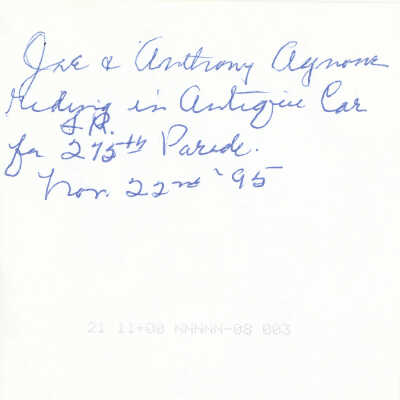 Joe & Anthony Agnone
riding in Antique Car
S.R.
for 275th Parade.
Nov. 22nd '95
21 11+00 NNNNN-08 003